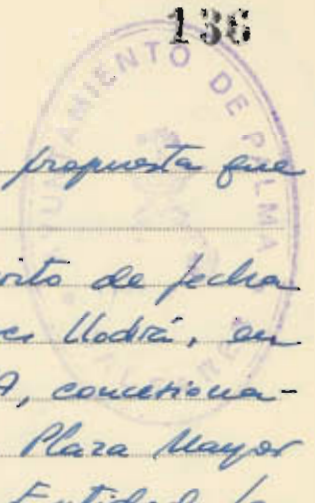 136
AYUNTAMIENTO DE PALMA
propuesta que
rito de fecha
Llodrá, en
A, concesiona-
Plaza Mayor
Entidad